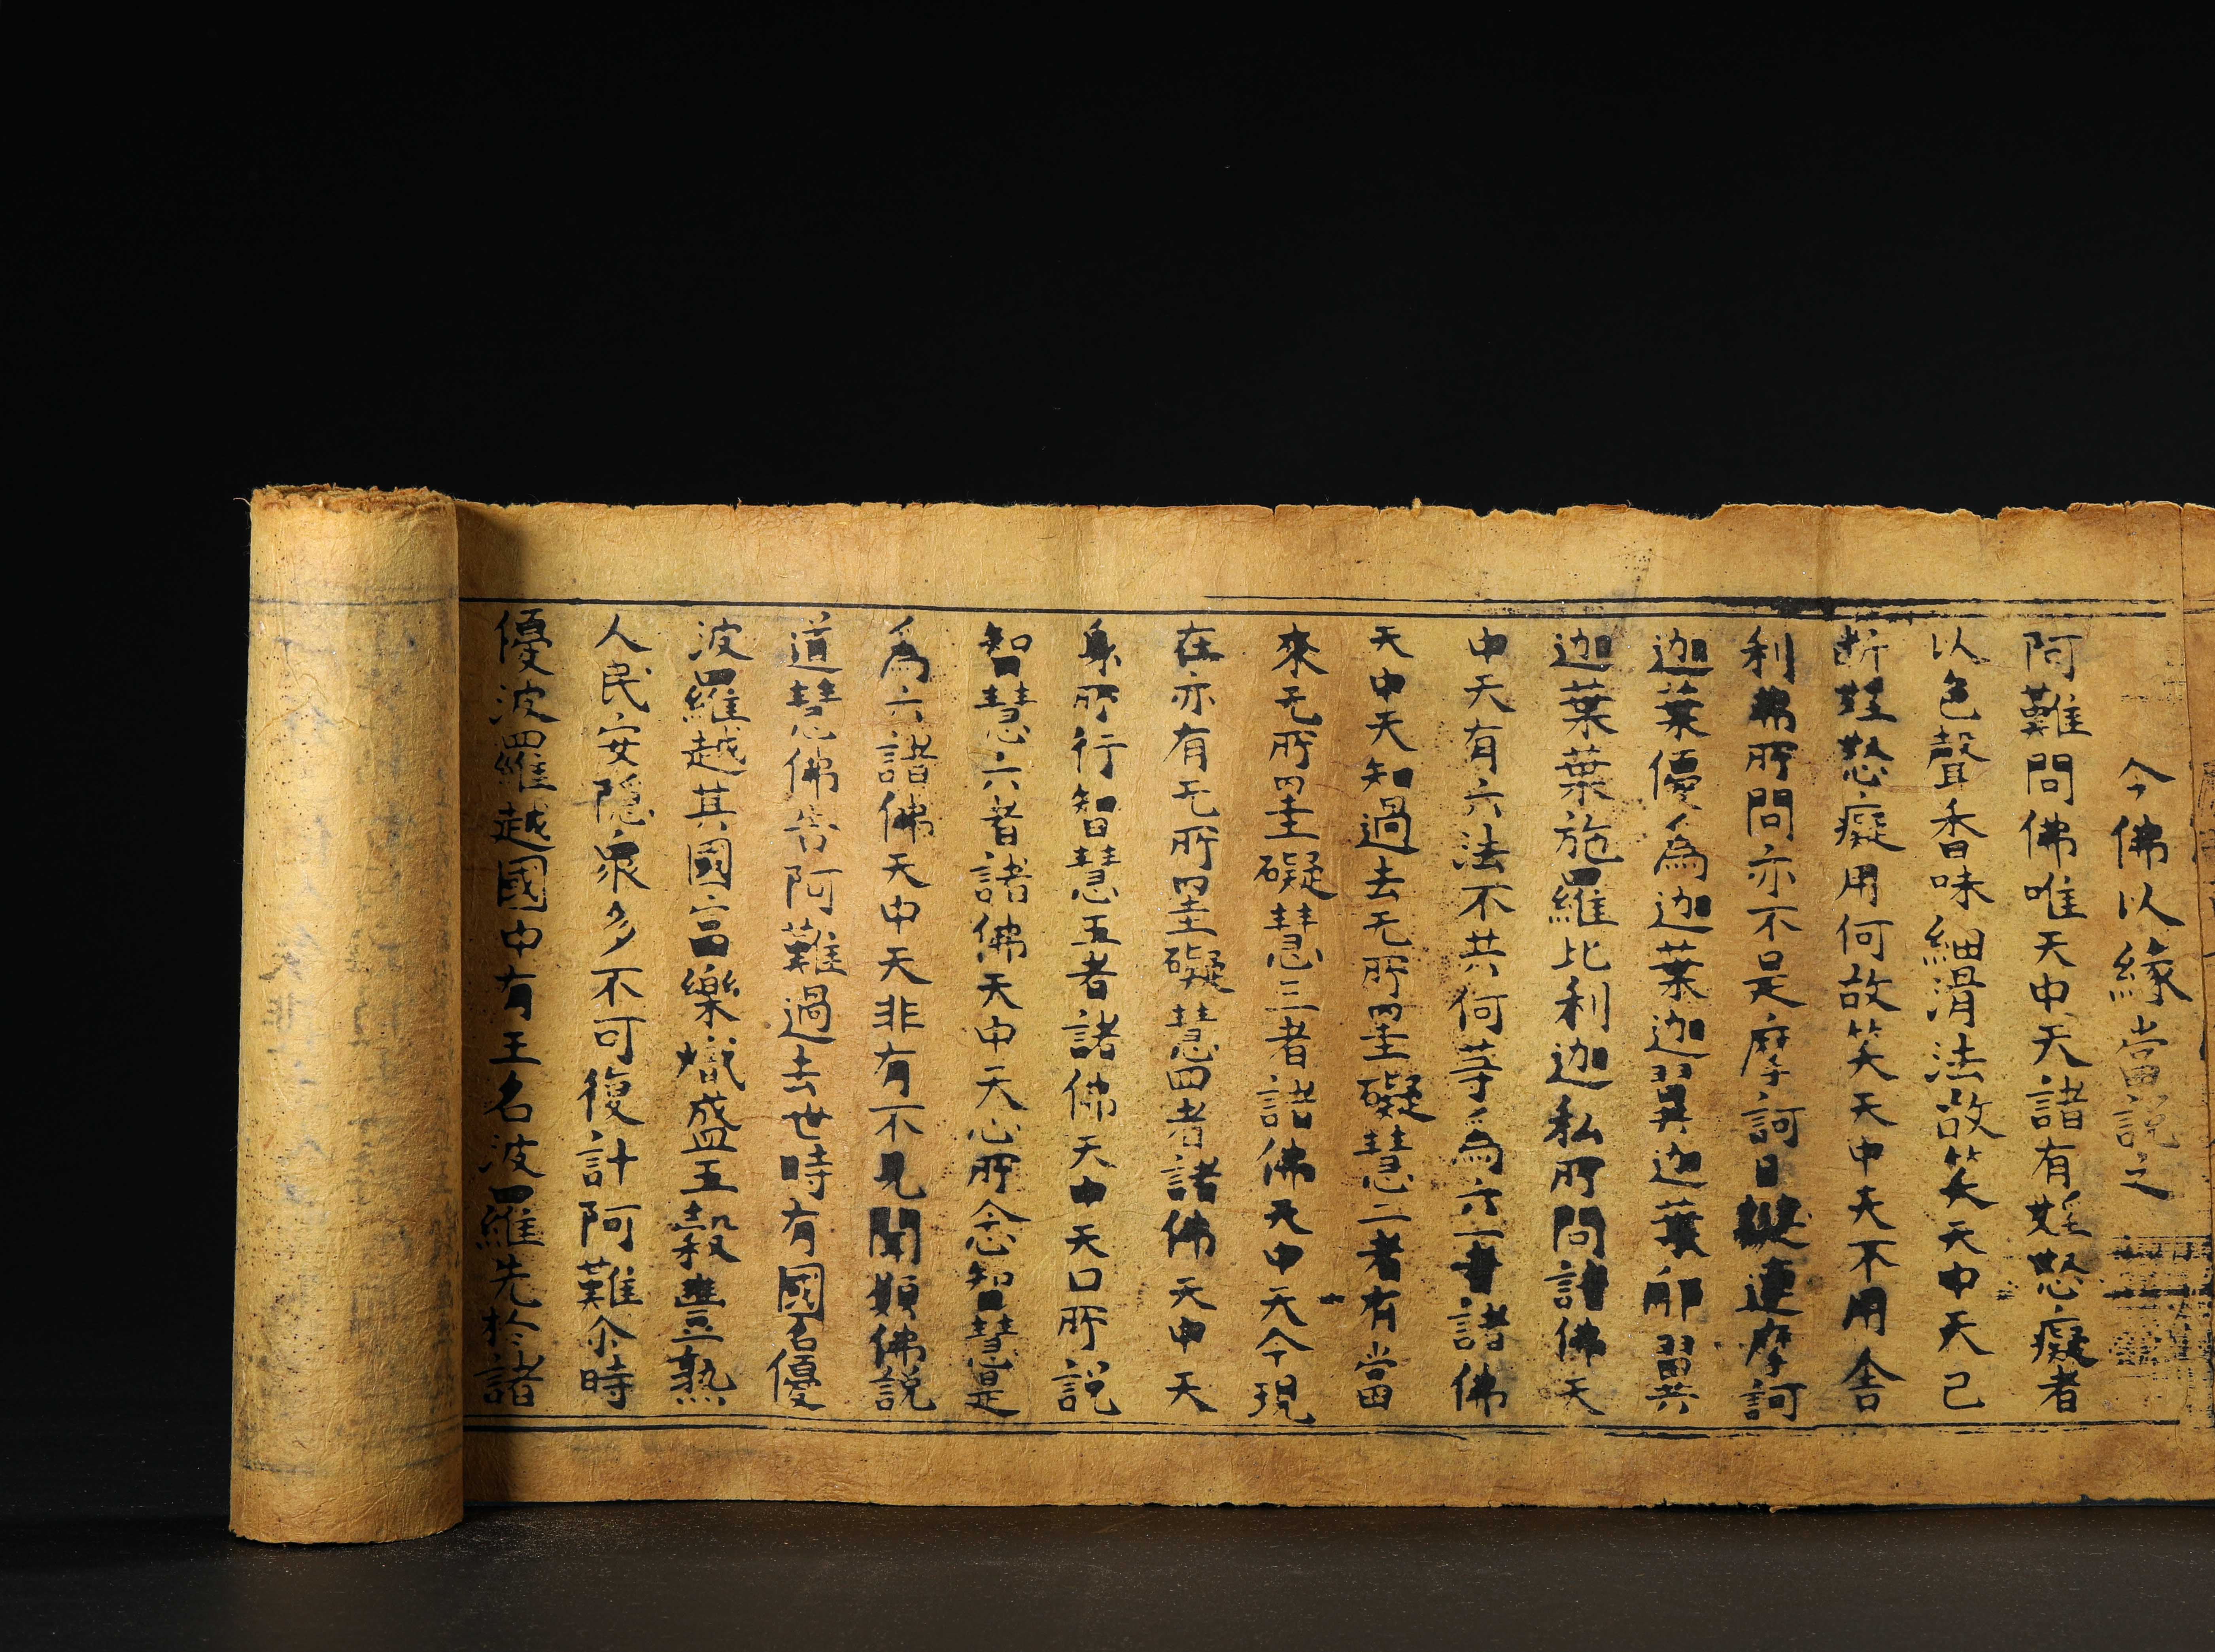 今佛以緣當說之
阿難問佛唯天中天諸有婬怒癡者
以色聲香味細滑法故笑天中天已
斷婬怒癡用何故笑天中天不用舍
利弗所問亦不是摩訶目揵連摩訶
迦葉優為迦葉迦翼迦葉那翼
迦葉葉施羅比利迦私所問諸佛天
中天有六法不共何等為六一者諸佛
天中天知過去无所罣礙慧二者有當
來无所罣礙慧三者諸佛天中天今現
在亦有无所罣礙慧四者諸佛天中天
身所行智慧五者諸佛天中天口所說
智慧六者諸佛天中天心所念智慧是
為六諸佛天中天非有不見聞願佛說
道慧佛告阿難過去世時有國名優
波羅越其國富樂熾盛五穀豐熟
人民安隱衆多不可復計阿難尒時
優波羅越國中有王名波羅先於諸